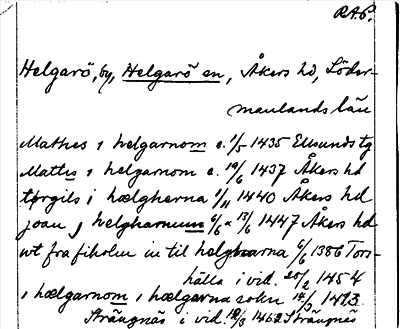 RA6.
Helgarö, by, Helgarö en, Åkers hd, Söder-
manlands län
Mathes i helgarnom o. 1/5 1435 Ellsunds tg
Mattis i helgarnom o. 19/6 1437 Åkers hd
torgils i hælgherna 1/11 1440 Åkers hd
joan j helgharnum 6/6 13/6 1447 Åkers hd
wt fra fiholm in til helgharna 6/6 1386 Tors-
hälla i vid. 20/2 1454
i hælgarnom, i hælgarna sokn 14/3 1413
Strängnäs i vid. 12/3 1462 Strängnäs